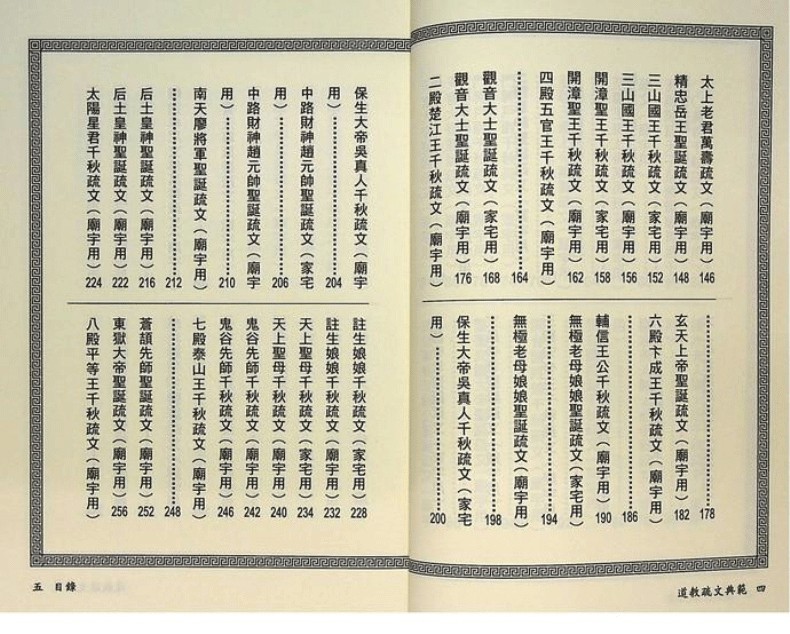 太上老君萬壽疏文（廟宇用）146
精忠岳王聖誕疏文（廟宇用）148
三山國王千秋疏文（家宅用）152
三山國王千秋疏文（廟宇用）156
開漳聖王千秋疏文（家宅用）158
開漳聖王千秋疏文（廟宇用）162
四殿五官王千秋疏文（廟宇用）
……………………164
觀音大士聖誕疏文（家宅用）168
觀音大士聖誕疏文（廟宇用）176
二殿楚江王千秋疏文（廟宇用）
……………………178
玄天上帝聖誕疏文（廟宇用）182
六殿卞成王千秋疏文（廟宇用）
……………………186
輔信王公千秋疏文（廟宇用）190
無極老母娘娘聖誕疏文（家宅用）
……………………194
無極老母娘娘聖誕疏文（廟宇用）
……………………198
保生大帝吳真人千秋疏文（家宅
用）…………………200
道教疏文典範 四
保生大帝吳真人千秋疏文（廟宇
用）…………………204
中路財神趙元帥聖誕疏文（家宅
用）…………………206
中路財神趙元帥聖誕疏文（廟宇
用）…………………210
南天廖將軍聖誕疏文（廟宇用）
……………………212
后土皇神聖誕疏文（廟宇用）216
后土皇神聖誕疏文（廟宇用）222
太陽星君千秋疏文（廟宇用）224
註生娘娘千秋疏文（家宅用）228
註生娘娘千秋疏文（廟宇用）232
天上聖母千秋疏文（家宅用）234
天上聖母千秋疏文（廟宇用）240
鬼谷先師千秋疏文（家宅用）242
鬼谷先師千秋疏文（廟宇用）246
七殿泰山王千秋疏文（廟宇用）
……………………248
蒼頡先師聖誕疏文（廟宇用）252
東嶽大帝聖誕疏文（廟宇用）256
八殿平等王千秋疏文（廟宇用）
五 目錄